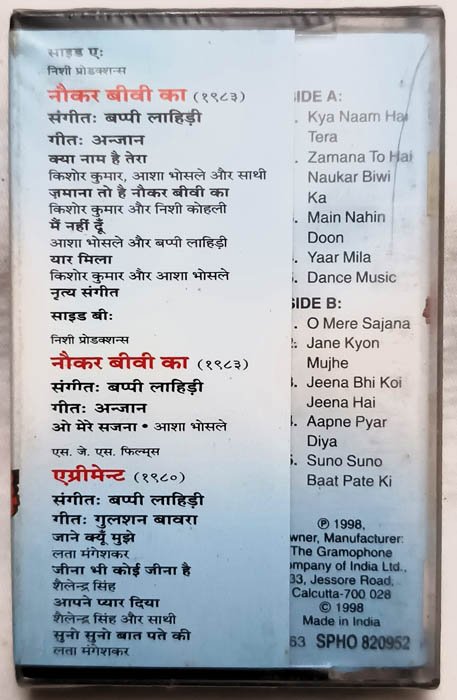 साइड ए:
निशी प्रोडक्शन्स
नौकर बीवी का (१९८३)
संगीत: बप्पी लाहिड़ी
गीत: अन्जान
क्या नाम है तेरा
किशोर कुमार, आशा भोसले और साथी
ज़माना तो है नौकर बीवी का
किशोर कुमार और निशी कोहली
मैं नहीं दूँ
आशा भोसले और बप्पी लाहिड़ी
यार मिला
किशोर कुमार और आशा भोसले
नृत्य संगीत
साइड बी:
निशी प्रोडक्शन्स
नौकर बीवी का (१९८३)
संगीत: बप्पी लाहिड़ी
गीत: अन्जान
ओ मेरे सजना • आशा भोसले
एस. जे. एस. फिल्म्स
एग्रीमेन्ट (१९८०)
संगीत: बप्पी लाहिड़ी
गीत: गुलशन बावरा
जाने क्यूँ मुझे
लता मंगेशकर
जीना भी कोई जीना है
शैलेन्द्र सिंह
आपने प्यार दिया
शैलेन्द्र सिंह और साथी
सुनो सुनो बात पते की
लता मंगेशकर
SIDE A:
Kya Naam Hai
Tera
Zamana To Hai
Naukar Biwi
Ka
Main Nahin
Doon
Yaar Mila
Dance Music
SIDE B:
O Mere Sajana
2. Jane Kyon
Mujhe
3. Jeena Bhi Koi
Jeena Hai
4. Aapne Pyar
Diya
5. Suno Suno
Baat Pate Ki
℗ 1998,
Owner, Manufacturer:
The Gramophone
Company of India Ltd.,
33, Jessore Road,
Calcutta-700 028
© 1998
Made in India
63 SPHO 820952